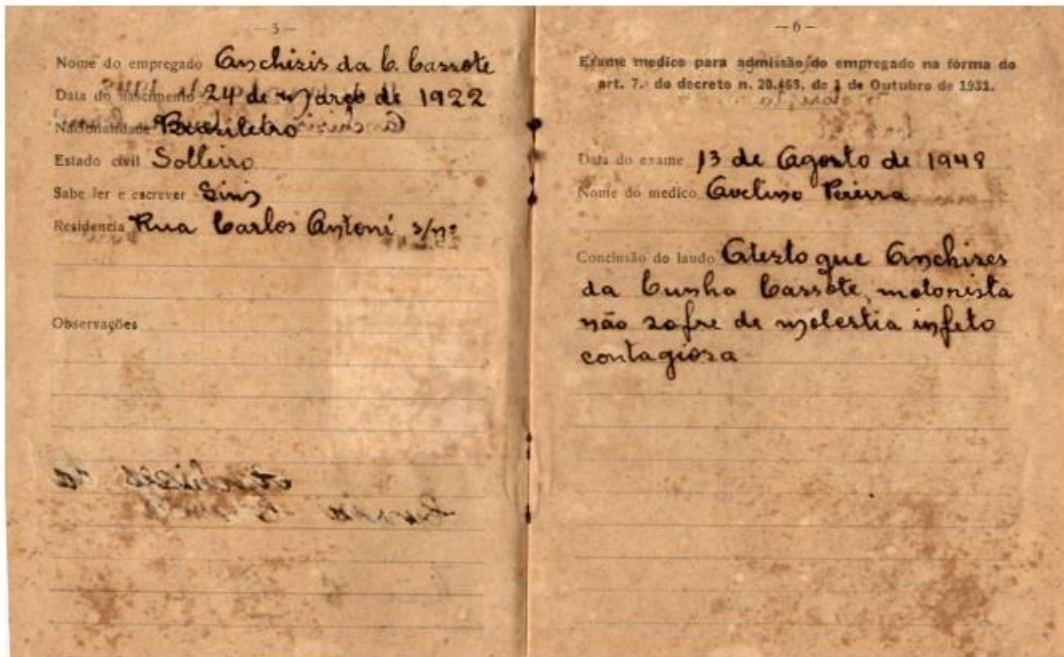 — 5 —
Nome do empregado Anchizis da C. Cassote
Data do nascimento 24 de Março de 1922
Nacionalidade Brasileiro
Estado civil Solteiro
Sabe ler e escrever Sim
Residencia Rua Carlos Antoni s/nº
Observações
— 6 —
Exame medico para admissão do empregado na fórma do
art. 7.º do decreto n. 20.465, de 1 de Outubro de 1931.
Data do exame 13 de Agosto de 1948
Nome do medico Avelino Pereira
Conclusão do laudo Atesto que Anchizes
da Cunha Cassote, motorista
não sofre de molestia infeto
contagiosa